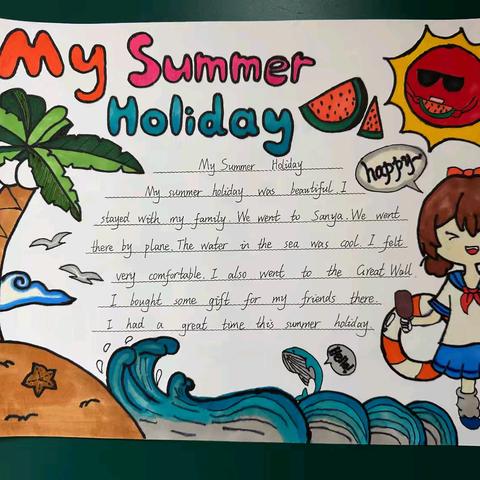 My Summer
Holiday
My Summer Holiday
happy~
My summer holiday was beautiful. I
stayed with my family. We went to Sanya. We went
there by plane. The water in the sea was cool. I felt
very comfortable. I also went to the Great Wall.
I bought some gift for my friends there.
I had a great time this summer holiday.